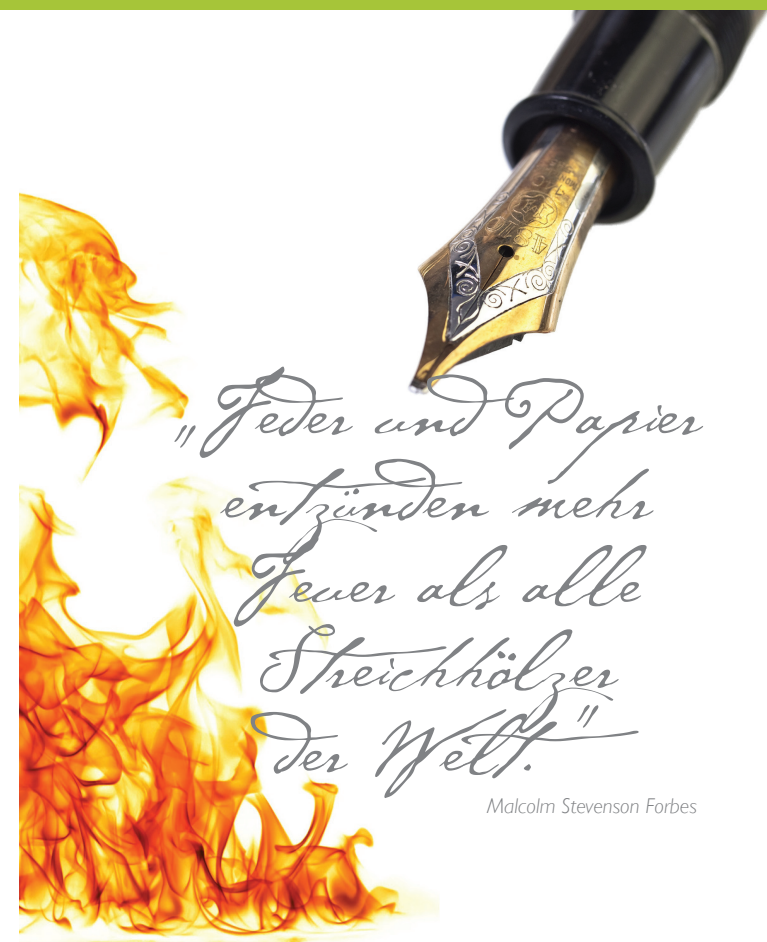 „Feder und Papier
entzünden mehr
Feuer als alle
Streichhölzer
der Welt."
Malcolm Stevenson Forbes